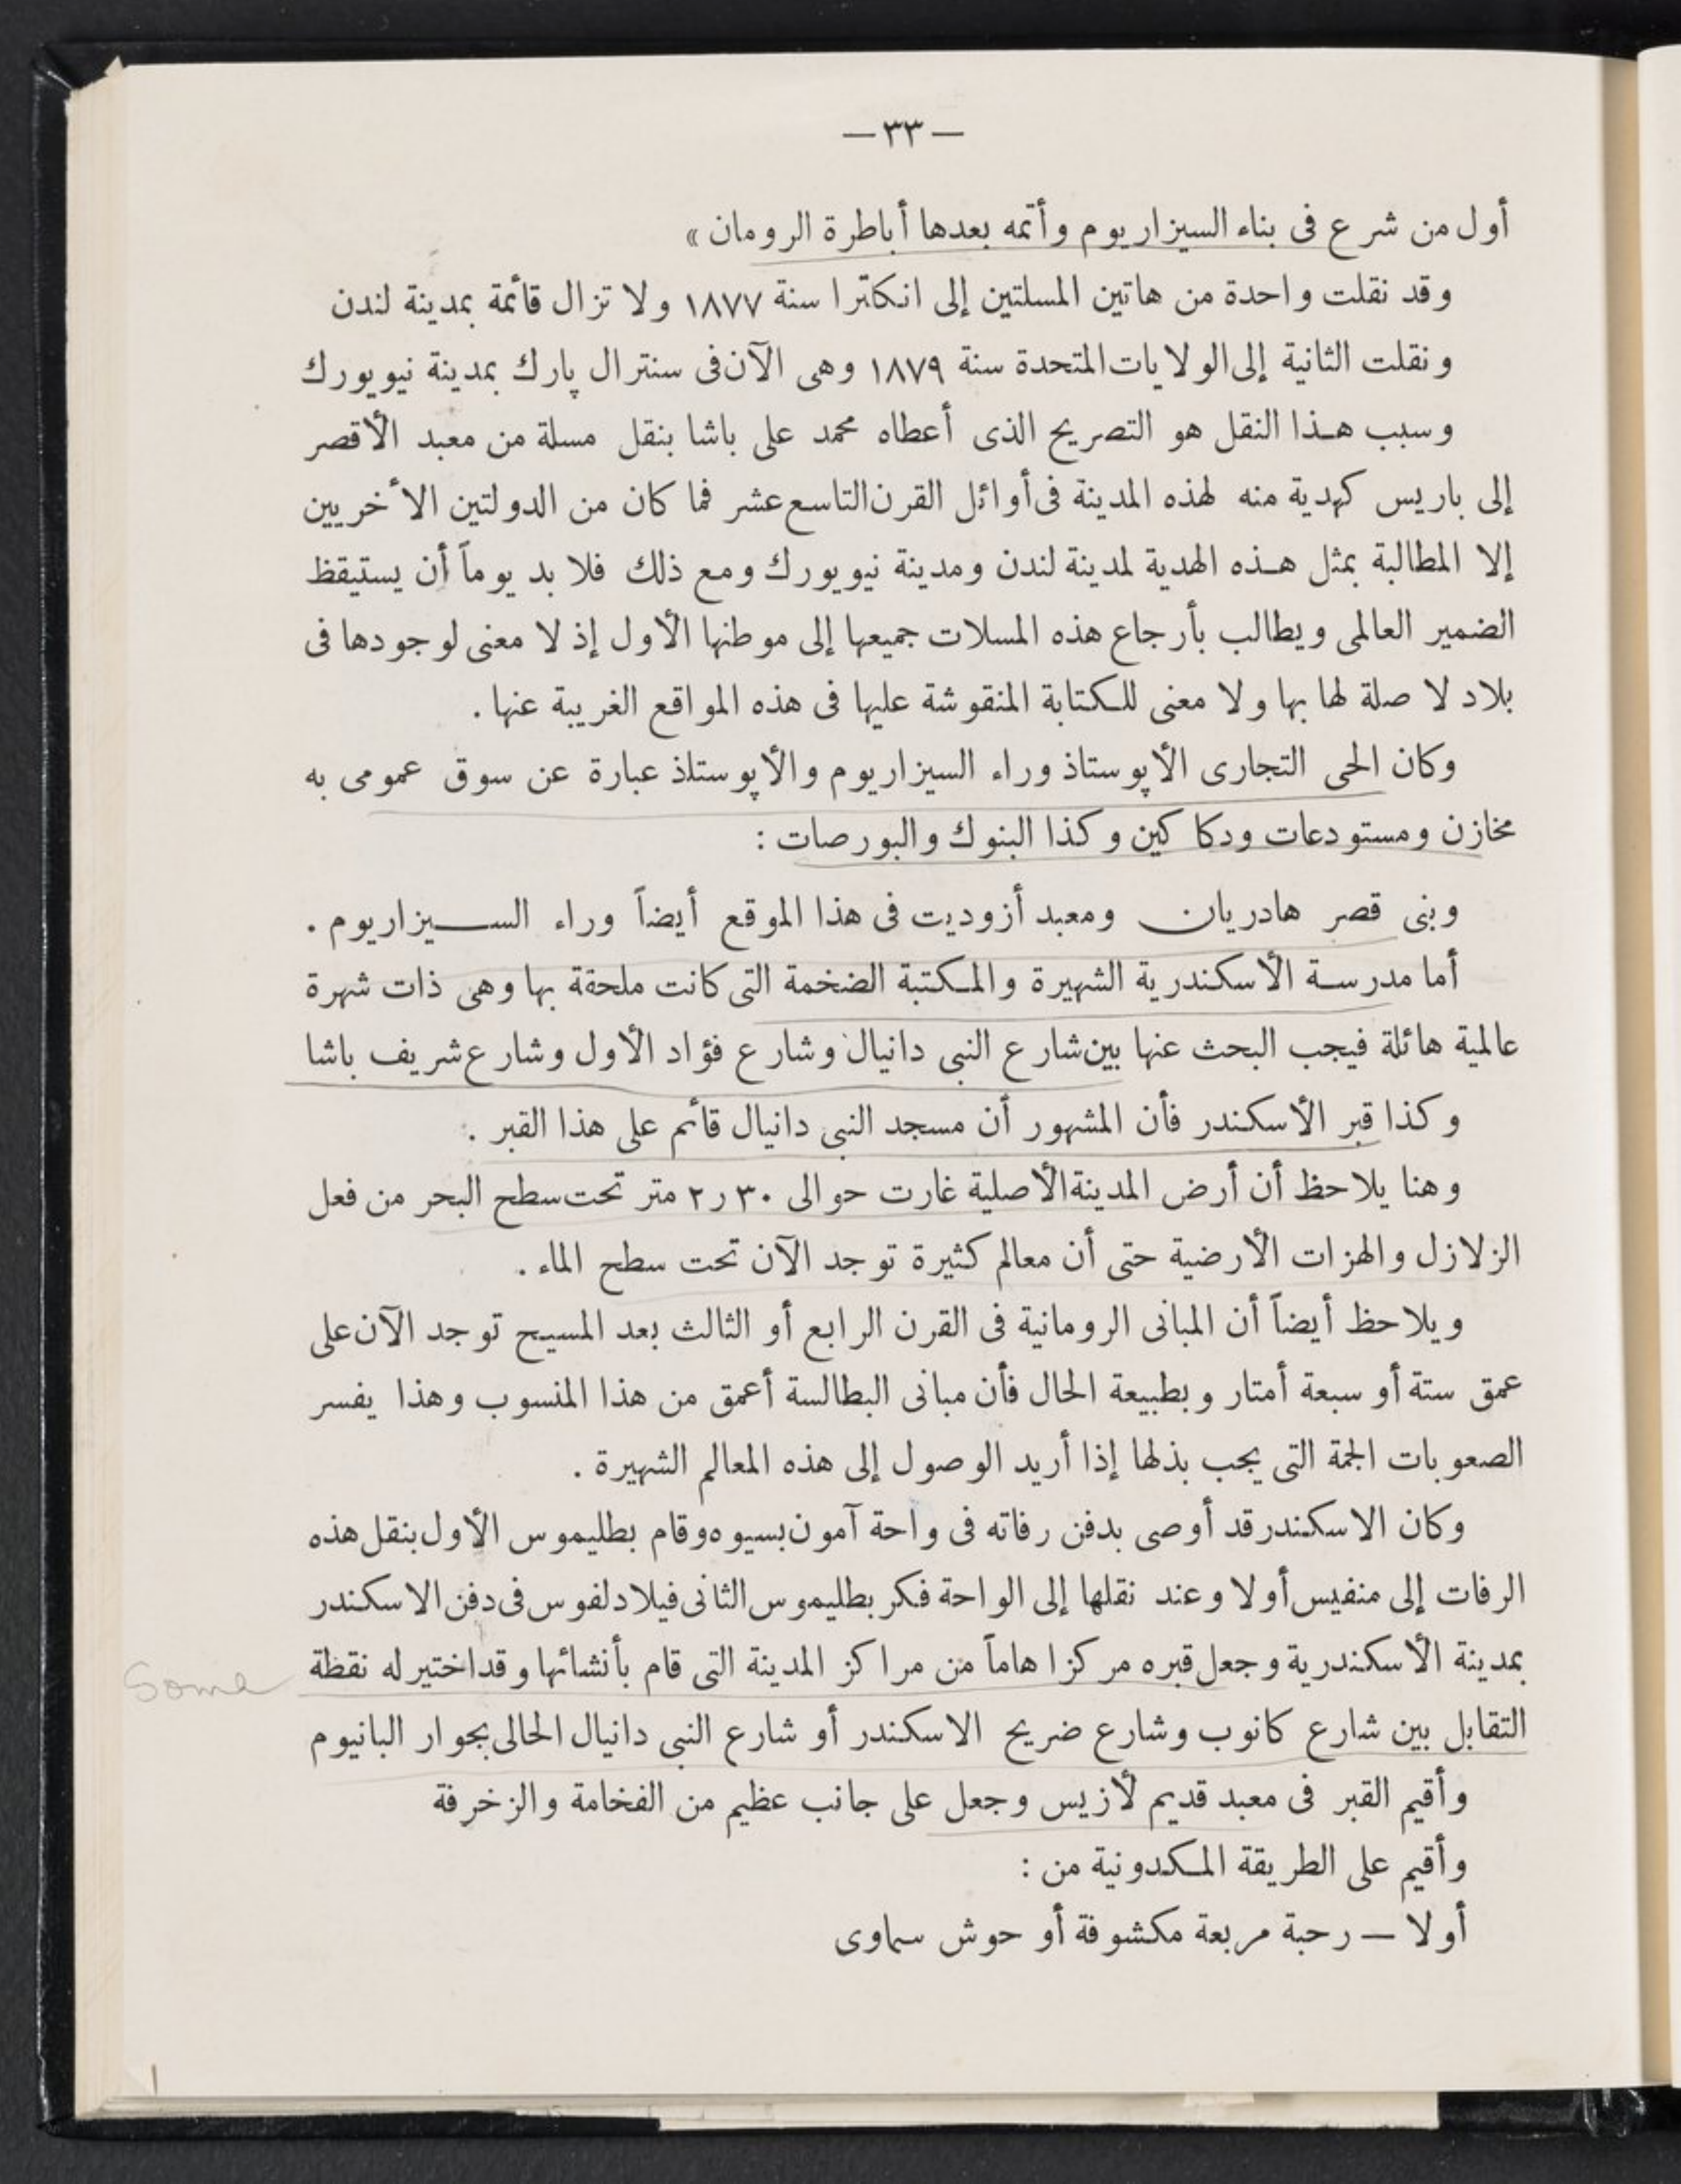 — ٣٣ —
أول من شرع فى بناء السيزاريوم وأتمه بعدها أباطرة الرومان »
وقد نقلت واحدة من هاتين المسلتين إلى انكلترا سنة ١٨٧٧ ولا تزال قائمة بمدينة لندن
ونقلت الثانية إلى الولايات المتحدة سنة ١٨٧٩ وهى الآن فى سنترال پارك بمدينة نيويورك
وسبب هذا النقل هو التصريح الذى أعطاه محمد على باشا بنقل مسلة من معبد الأقصر
إلى باريس كهدية منه لهذه المدينة فى أوائل القرن التاسع عشر فما كان من الدولتين الأخريين
إلا المطالبة بمثل هذه الهدية لمدينة لندن ومدينة نيويورك ومع ذلك فلا بد يوماً أن يستيقظ
الضمير العالمى ويطالب بأرجاع هذه المسلات جميعها إلى موطنها الأول إذ لا معنى لوجودها فى
بلاد لا صلة لها بها ولا معنى للكتابة المنقوشة عليها فى هذه المواقع الغريبة عنها .
وكان الحى التجارى الأپوستاذ وراء السيزاريوم والأپوستاذ عبارة عن سوق عمومى به
مخازن ومستودعات ودكاكين وكذا البنوك والبورصات :
وبنى قصر هادريان ومعبد أزوديت فى هذا الموقع أيضاً وراء السيزاريوم .
أما مدرسة الأسكندرية الشهيرة والمكتبة الضخمة التى كانت ملحقة بها وهى ذات شهرة
عالمية هائلة فيجب البحث عنها بين شارع النبى دانيال وشارع فؤاد الأول وشارع شريف باشا
وكذا قبر الأسكندر فأن المشهور أن مسجد النبى دانيال قائم على هذا القبر .
وهنا يلاحظ أن أرض المدينة الأصلية غارت حوالى ٣٠ر٢ متر تحت سطح البحر من فعل
الزلازل والهزات الأرضية حتى أن معالم كثيرة توجد الآن تحت سطح الماء .
ويلاحظ أيضاً أن المبانى الرومانية فى القرن الرابع أو الثالث بعد المسيح توجد الآن على
عمق ستة أو سبعة أمتار وبطبيعة الحال فأن مبانى البطالسة أعمق من هذا المنسوب وهذا يفسر
الصعوبات الجمة التى يجب بذلها إذا أريد الوصول إلى هذه المعالم الشهيرة .
وكان الاسكندر قد أوصى بدفن رفاته فى واحة آمون بسيوه وقام بطليموس الأول بنقل هذه
الرفات إلى منفيس أولا وعند نقلها إلى الواحة فكر بطليموس الثانى فيلادلفوس فى دفن الاسكندر
بمدينة الأسكندرية وجعل قبره مركزا هاماً من مراكز المدينة التى قام بأنشائها وقد اختير له نقطة
Some
التقابل بين شارع كانوب وشارع ضريح الاسكندر أو شارع النبى دانيال الحالى بجوار البانيوم
وأقيم القبر فى معبد قديم لأزيس وجعل على جانب عظيم من الفخامة والزخرفة
وأقيم على الطريقة المكدونية من :
أولا — رحبة مربعة مكشوفة أو حوش سماوى